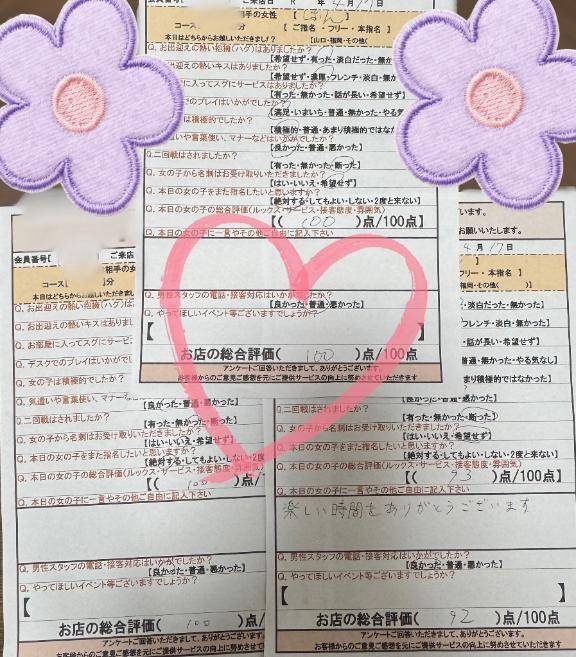 ご来店日 R 年 4月17日
の女性 【
コース 分 【 ご指名 ・ フリー ・ 本指名 】
本日はどちらからお越しいただきましたか? 【山口・福岡・その他(
Q. お出迎えの熱い抱擁(ハグ)はありましたか?
【希望せず・有った・淡白だった・無か
お出迎えの熱いキスはありましたか?
【希望せず・濃厚・フレンチ・淡白・無か
に入ってスグにサービス
【有った・無かった・話が長い・希望せず】
でのプレイはいかがでしたか?
【満足・いまいち・普通・無かった・やる気
は積極的でしたか?
【積極的・普通・あまり積極的ではな
いや言葉使い、マナーなどはいかがでしたか?
【良かった・普通・悪かった】
Q. 二回戦はされましたか?
【有った・無かった・断った】
Q. 女の子から名刺はお受け取りいただきましたか?
【はい・いいえ・希望せず】
Q. 本日の女の子をまた指名したいと思いますか?
【絶対する・してもよい・しない・2度と来ない】
Q. 本日の女の子の総合評価(ルックス・サービス・接客態度・雰囲気)
【( 100 )点/100点】
Q. 本日の女の子に一言やその他ご自由に記入下さい
Q. 男性スタッフの電話・接客対応はいかがでしたか?
【良かった・普通・悪かった】
Q. やってほしいイベント等ございますでしょうか?
【
お店の総合評価( 100 )点/100点
アンケートご回答いただきまして、ありがとうございます。
お客様からのご意見ご感想を元にご提供サービスの向上に努めさせていただきます
会員番号( ご来店
相手の女
コース 分
本日はどちらからお越しいただきま
Q. お出迎えの熱い抱擁(ハグ)はあ
Q. お出迎えの熱いキスはありまし
Q. お部屋に入ってスグにサービ
Q. デスクでのプレイはいかがでし
Q. 女の子は積極的でしたか?
Q. 気遣いや言葉使い、マナー
【良かった・普通・悪かった】
Q. 二回戦はされましたか?
【有った・無かった・断った】
Q. 女の子から名刺はお受け取りいただきましたか?
【はい・いいえ・希望せず】
Q. 本日の女の子をまた指名したいと思いますか?
【絶対する・してもよい・しない・2度
Q. 本日の女の子の総合評価(ルックス・サービス・接客態度・雰囲気)
【( 100 )点/1
Q. 本日の女の子に一言やその他ご自由に記入下さい
Q. 男性スタッフの電話・接客対応はいかがでしたか?
【良かった・普通・悪かった】
Q. やってほしいイベント等ございますでしょうか?
【
お店の総合評価( 100 )点/
アンケートご回答いただきまして、ありがとうござ
お客様からのご意見ご感想を元にご提供サービスの向上に努めさせ
います。
お願いします。
4月17日
】
フリー ・ 本指名 】
福岡・その他( )】
淡白だった・無かった】
フレンチ・淡白・無かった】
・話が長い・希望せず】
普通・無かった・やる気なし】
まり積極的ではなかった】
かった・普通・悪かった】
Q. 二回戦はされましたか?
【有った・無かった・断った】
Q. 女の子から名刺はお受け取りいただきましたか?
【はい・いいえ・希望せず】
Q. 本日の女の子をまた指名したいと思いますか?
【絶対する・してもよい・しない・2度と来ない】
Q. 本日の女の子の総合評価(ルックス・サービス・接客態度・雰囲気)
【( 93 )点/100点】
Q. 本日の女の子に一言やその他ご自由に記入下さい
楽しい時間をありがとうございます
Q. 男性スタッフの電話・接客対応はいかがでしたか?
【良かった・普通・悪かった】
Q. やってほしいイベント等ございますでしょうか?
【 】
お店の総合評価( 92 )点/100点
アンケートご回答いただきまして、ありがとうございます。
お客様からのご意見ご感想を元にご提供サービスの向上に努めさせていただきます